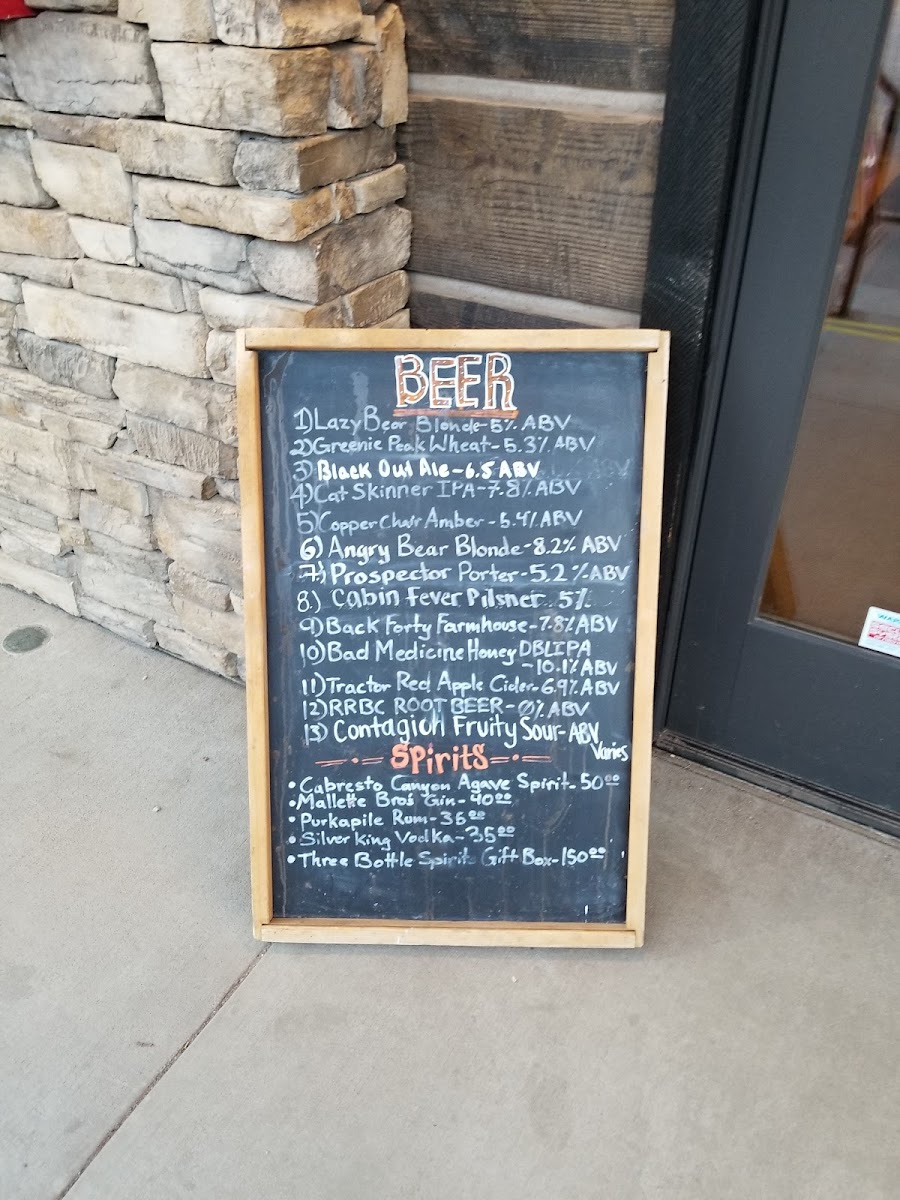 BEER
1) Lazy Bear Blonde - 5% ABV
2) Greenie Peak Wheat - 5.3% ABV
3) Black Out Ale - 6.5 ABV
4) Cat Skinner IPA - 7.8% ABV
5) Copper Chair Amber - 5.4% ABV
6) Angry Bear Blonde - 8.2% ABV
7.) Prospector Porter - 5.2% - ABV
8.) Cabin Fever Pilsner 5%
9) Back Forty Farmhouse - 7.8% ABV
10) Bad Medicine Honey DBL IPA
- 10.1% ABV
11) Tractor Red Apple Cider - 6.9% ABV
12) RRBC ROOT BEER - 0% ABV
13) Contagion Fruity Sour - ABV
Varies
SPirits
• Cabresto Canyon Agave Spirit - 50⁰⁰
• Mallette Bros Gin - 40⁰⁰
• Purkapile Rum - 36⁰⁰
• Silver King Vodka - 35⁰⁰
• Three Bottle Spirits Gift Box - 150⁰⁰